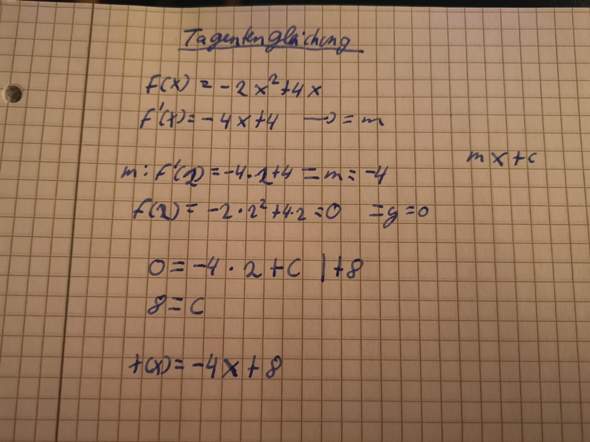 Tagentengleichung
f(x) = -2x²+4x
f'(x) = -4x+4 → = m
mx+c
m: f'(2) = -4·2+4 = m = -4
f(2) = -2·2²+4·2=0 = y=0
0 = -4 · 2 + C | +8
8 = C
t(x) = -4x + 8